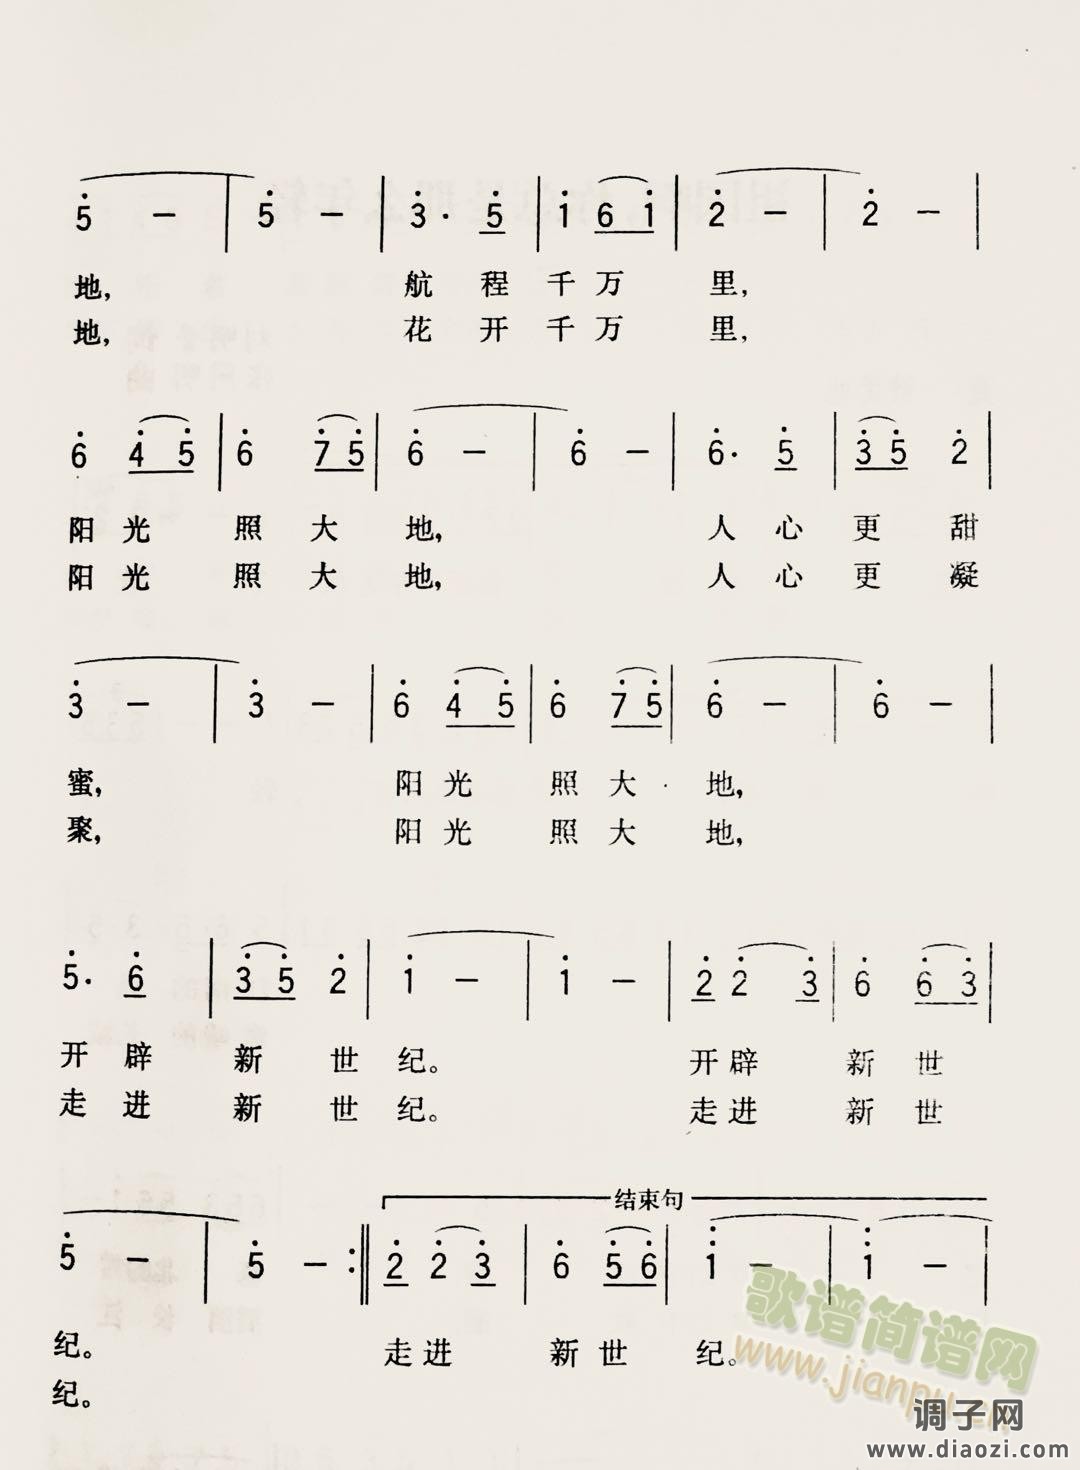 5 — | 5 — | 3· 5 | 1 6 1 | 2 — | 2 — |
地, 航 程 千 万 里,
地, 花 开 千 万 里,
6 4 5 | 6 7 5 | 6 — | 6 — | 6· 5 | 3 5 2 |
阳 光 照 大 地, 人 心 更 甜
阳 光 照 大 地, 人 心 更 凝
3 — | 3 — | 6 4 5 | 6 7 5 | 6 — | 6 — |
蜜, 阳 光 照 大 地,
聚, 阳 光 照 大 地,
5· 6 | 3 5 2 | 1 — | 1 — | 2 2 3 | 6 6 3 |
开 辟 新 世 纪。 开 辟 新 世
走 进 新 世 纪。 走 进 新 世
结束句
5 — | 5 — :‖ 2 2 3 | 6 5 6 | 1 — | 1 — |
纪。 走 进 新 世 纪。
纪。
歌谱简谱网
www.jianpu.cn
调子网
www.diaozi.com